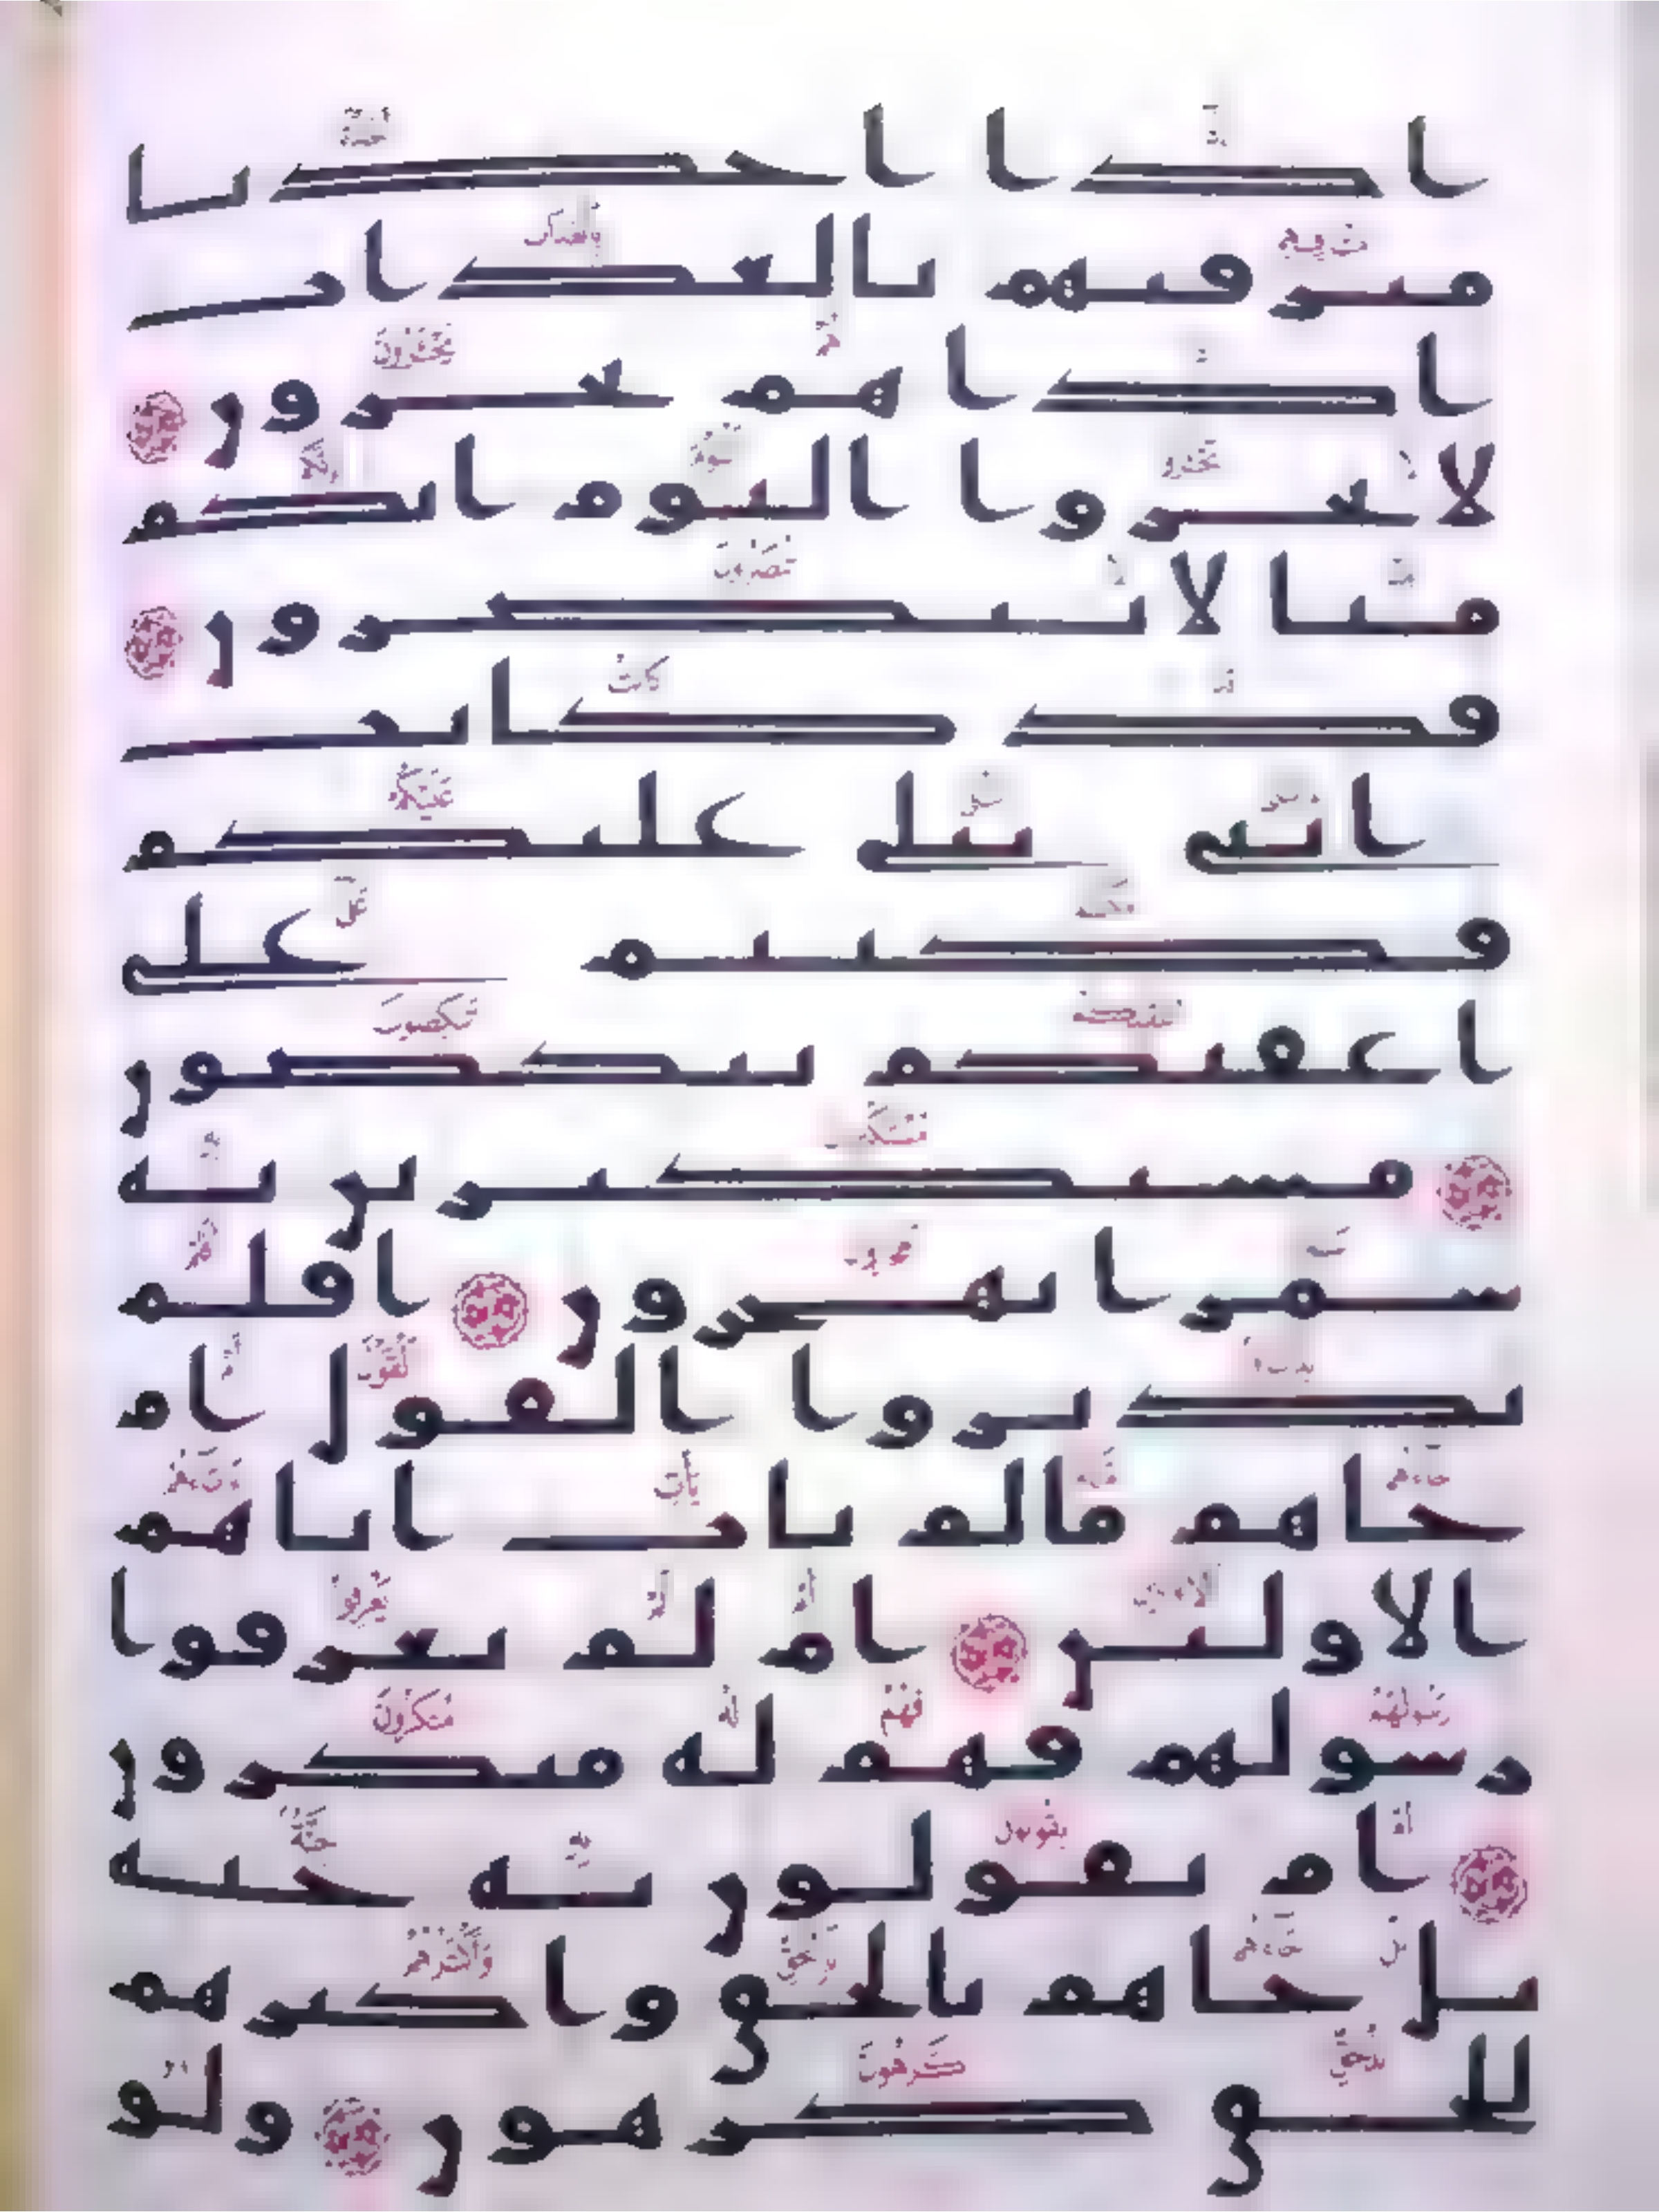 اذا اخذنا
مترفيهم بالعذاب
اذا هم يجرون
لا تجروا اليوم انكم
منا لا تنصرون
قد كانت
ايتي تتلى عليكم
فكنتم على
اعقبكم تنكصون
مستكبرين به
سمرا تهجرون افلم
يدبروا القول ام
جاهم ما لم يات اباهم
الاولين ام لم يعرفوا
رسولهم فهم له منكرون
ام يقولون به جنة
بل جاهم بالحق واكثرهم
للحق كرهون ولو